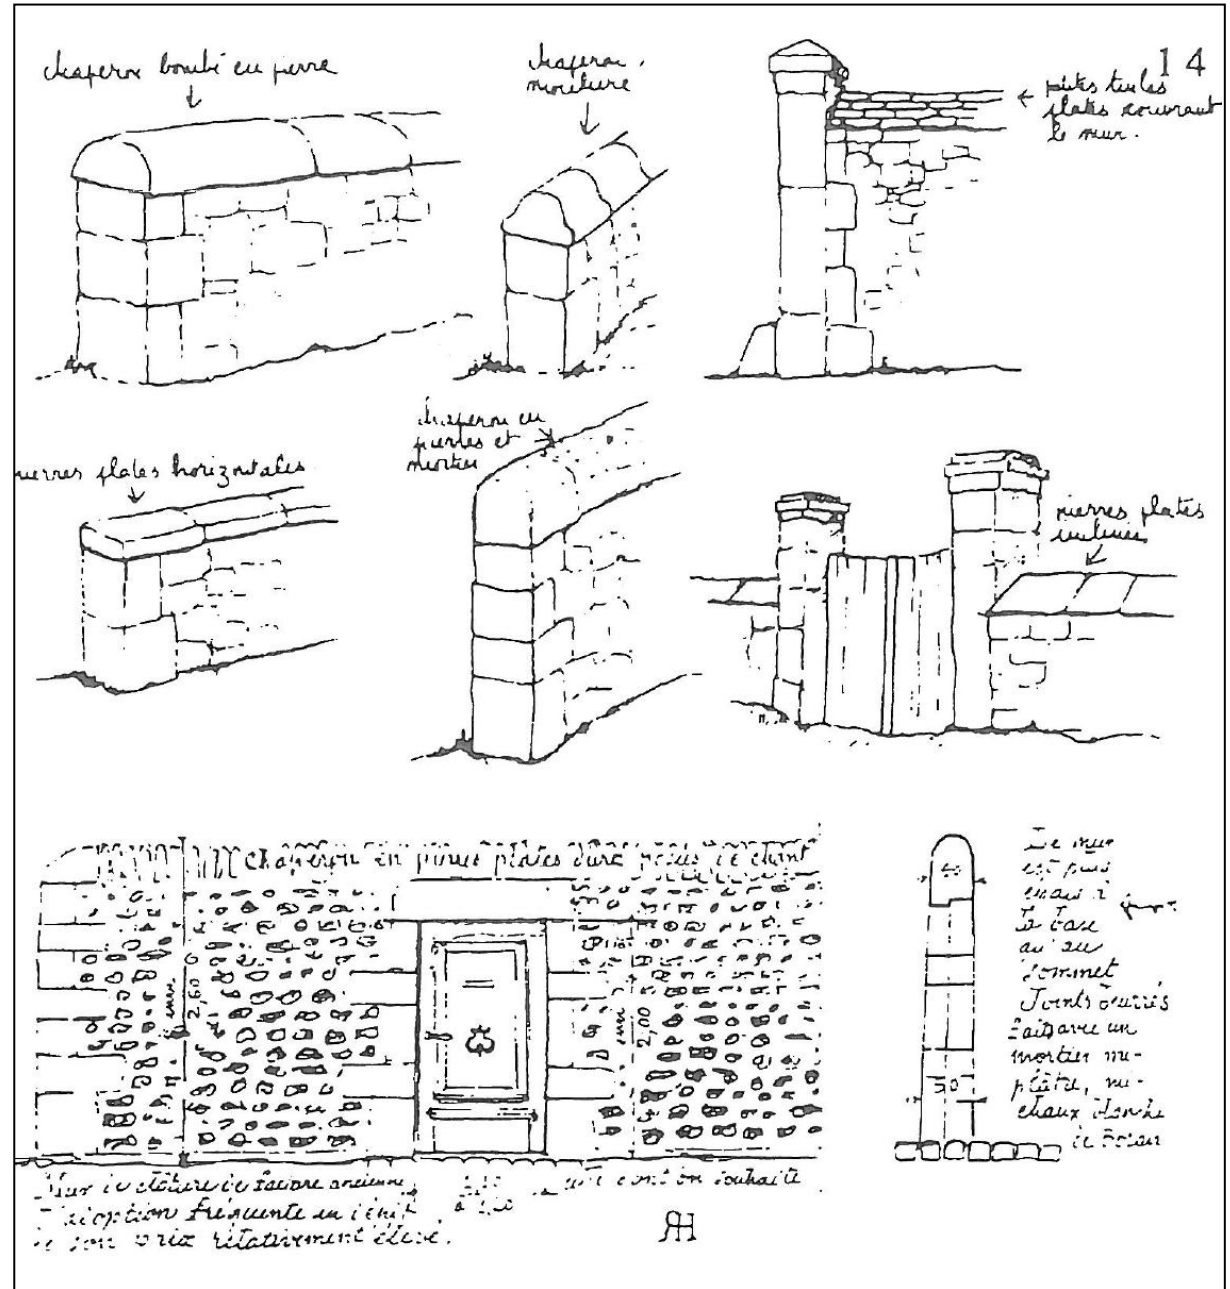 14
chaperon bombé en pierre
chaperon
moulure
petites tuiles
plates couvrant
le mur.
pierres plates horizontales
chaperon en
pierres et
mortier
pierres plates
inclinées
chaperon en pierres plates dure posées de chant
40
Le mur
est plus
épais à
la base
qu'au
sommet
Joints beurrés
Faits avec un
mortier mi-
plâtre, mi-
chaux blanche
2,60
2,00
50
Mur de clôture de facture ancienne
adoption fréquente en
de son prix relativement élevé.
dont on souhaite
RH